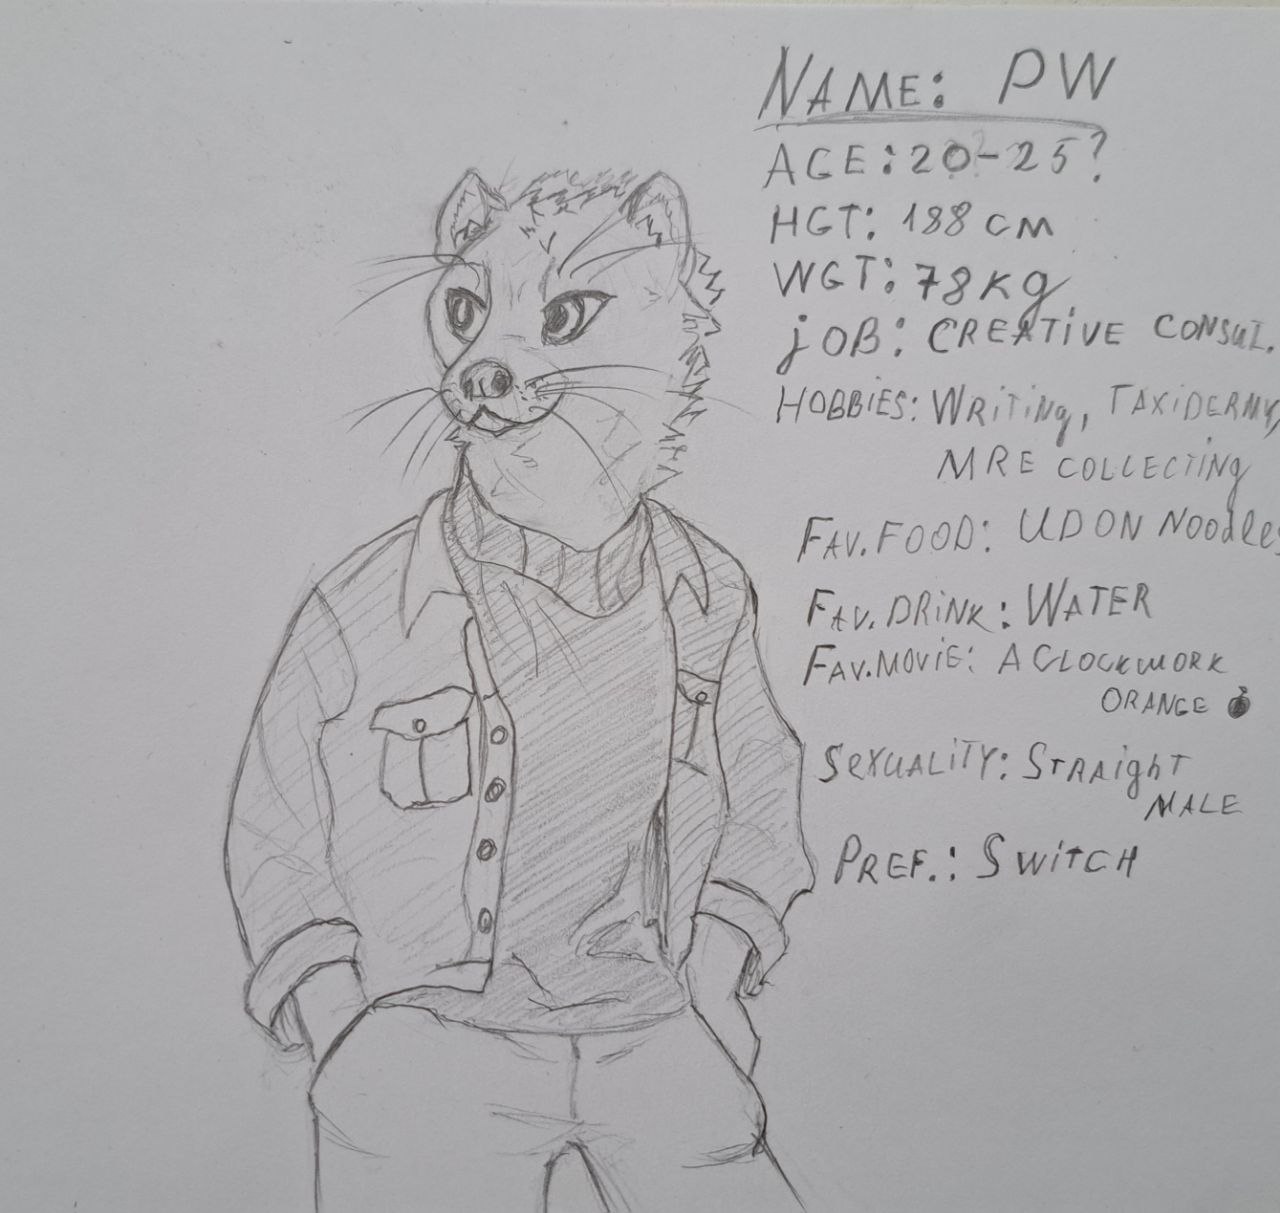 NAME: PW
AGE: 20-25?
HGT: 188 CM
WGT: 78Kg
jOB: CREATIVE CONSUL.
HOBBIES: WRiTiNg, TAXiDERMY,
MRE COLLECTiNg
FAV.FOOD: UDON Noodles
FAV.DRiNK: WATER
FAV.MOViE: A CLOCKWORK
ORANGE
SEXUALiTY: STRAighT
MALE
PREF.: SWiTCH